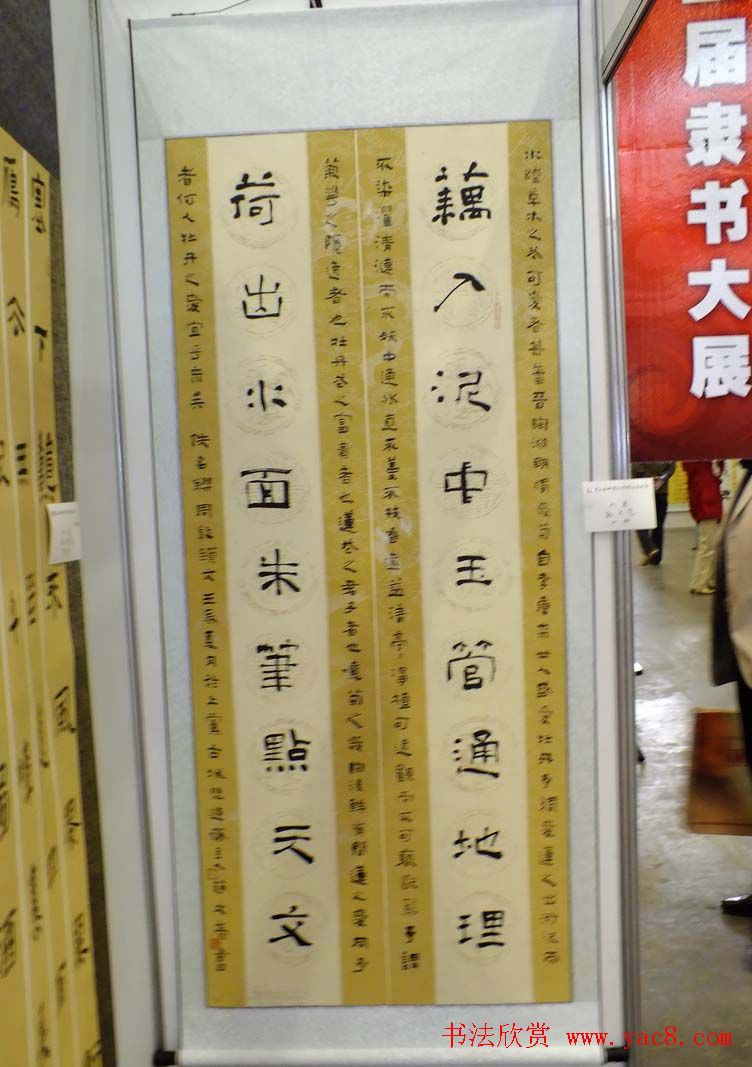 届隶书大展
水陸草木之花可愛者甚蕃晉陶淵明獨愛菊自李唐來世人盛愛牡丹予獨愛蓮之出淤泥而
藕入泥中玉管通地理
不染濯清漣而不妖中通外直不蔓不枝香遠益清亭〻淨植可遠觀而不可褻玩焉予謂
菊花之隱逸者也牡丹花之富貴者也蓮花之君子者也噫菊之愛陶後鮮有聞蓮之愛同予
荷出水面朱筆點天文
者何人牡丹之愛宜乎眾矣 佚名聯周敦頤文壬辰夏月
书法欣赏 www.yac8.com